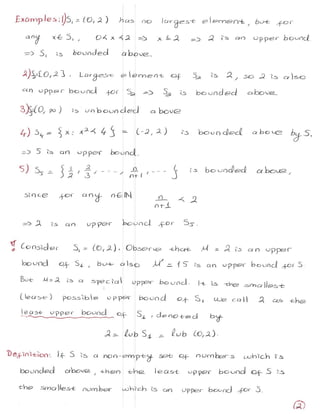 Examples: 1) S₁ = (0, 2) has no largest element, but for
any x ∈ S₁, 0 < x < 2 => x ≤ 2 => 2 is an upper bound
=> S₁ is bounded above.
2) S₂ = [0, 2]. Largest element of S₂ is 2, so 2 is also
an upper bound for S₂ => S₂ is bounded above.
3) [0, ∞) is unbounded above
4) S₄ = { x : x² < 4 } = (-2, 2) is bounded above by 5,
=> 5 is an upper bound.
5) S₅ = { 1/2, 2/3, ---, n/n+1, --- } is bounded above,
since for any n∈ℕ n/n+1 < 2
=> 2 is an upper bound for S₅.
Consider S₁ = (0, 2). Observe that M = 2 is an upper
bound of S₁, but also M' = 15 is an upper bound for S
But M = 2 is a special upper bound. It is the smallest
(least) possible upper bound of S₁ we call 2 as the
least upper bound of S₁, denoted by
2 = lub S₁ = lub (0, 2).
Definition: If S is a non-empty set of numbers which is
bounded above, then the least upper bound of S is
the smallest number which is an upper bound for S.
2